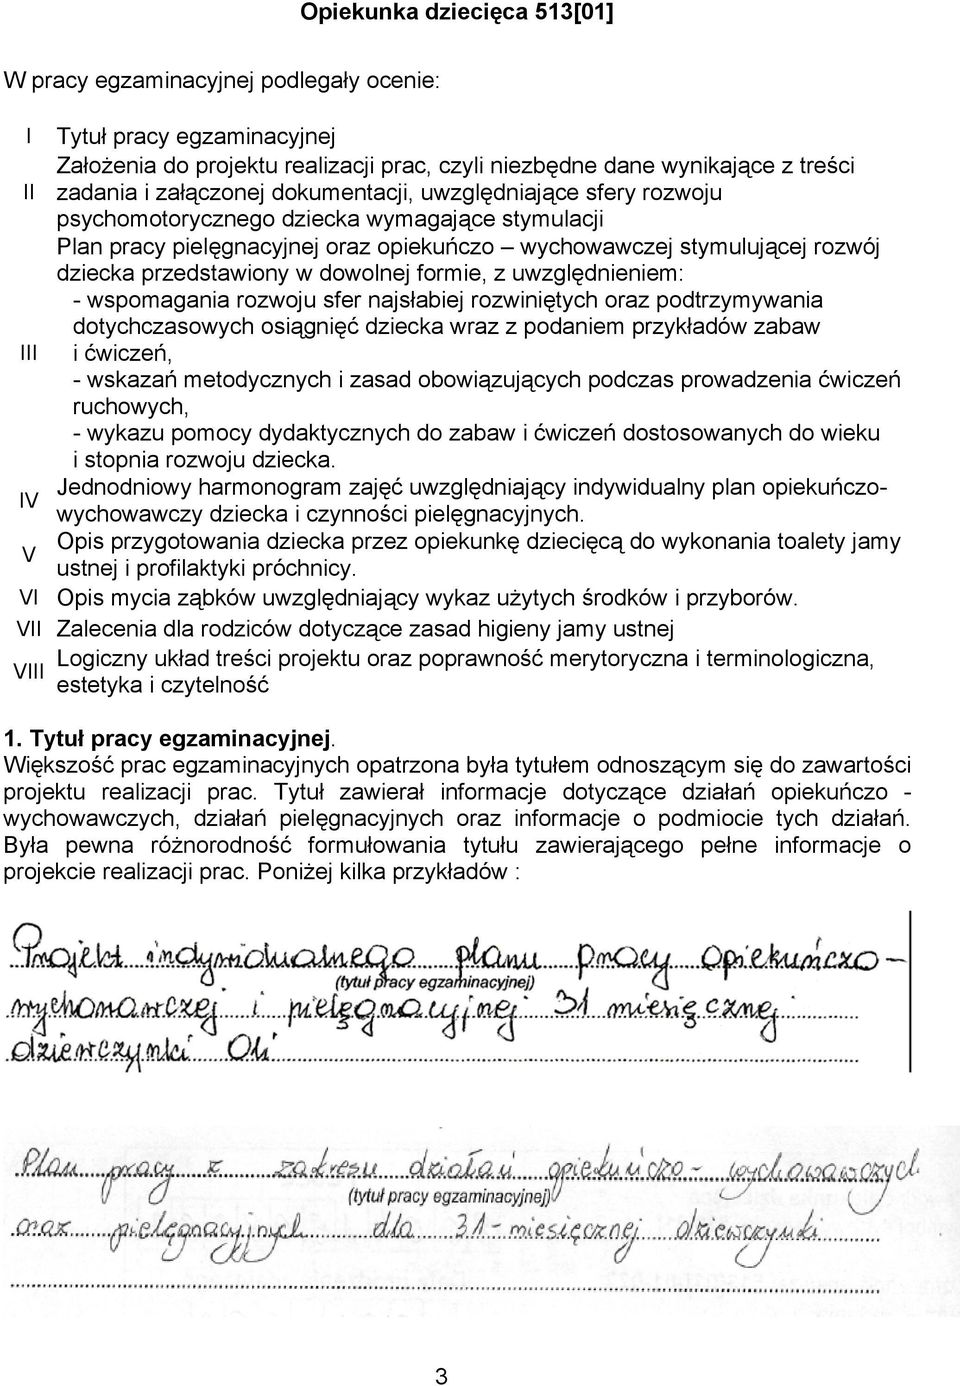 Opiekunka dziecięca 513[01]
W pracy egzaminacyjnej podlegały ocenie:
I Tytuł pracy egzaminacyjnej
Założenia do projektu realizacji prac, czyli niezbędne dane wynikające z treści
II zadania i załączonej dokumentacji, uwzględniające sfery rozwoju
psychomotorycznego dziecka wymagające stymulacji
Plan pracy pielęgnacyjnej oraz opiekuńczo – wychowawczej stymulującej rozwój
dziecka przedstawiony w dowolnej formie, z uwzględnieniem:
- wspomagania rozwoju sfer najsłabiej rozwiniętych oraz podtrzymywania
dotychczasowych osiągnięć dziecka wraz z podaniem przykładów zabaw
III i ćwiczeń,
- wskazań metodycznych i zasad obowiązujących podczas prowadzenia ćwiczeń
ruchowych,
- wykazu pomocy dydaktycznych do zabaw i ćwiczeń dostosowanych do wieku
i stopnia rozwoju dziecka.
IV Jednodniowy harmonogram zajęć uwzględniający indywidualny plan opiekuńczo-
wychowawczy dziecka i czynności pielęgnacyjnych.
V Opis przygotowania dziecka przez opiekunkę dziecięcą do wykonania toalety jamy
ustnej i profilaktyki próchnicy.
VI Opis mycia ząbków uwzględniający wykaz użytych środków i przyborów.
VII Zalecenia dla rodziców dotyczące zasad higieny jamy ustnej
VIII Logiczny układ treści projektu oraz poprawność merytoryczna i terminologiczna,
estetyka i czytelność
1. Tytuł pracy egzaminacyjnej.
Większość prac egzaminacyjnych opatrzona była tytułem odnoszącym się do zawartości
projektu realizacji prac. Tytuł zawierał informacje dotyczące działań opiekuńczo -
wychowawczych, działań pielęgnacyjnych oraz informacje o podmiocie tych działań.
Była pewna różnorodność formułowania tytułu zawierającego pełne informacje o
projekcie realizacji prac. Poniżej kilka przykładów :
Projekt indywidualnego planu pracy opiekuńczo-
(tytuł pracy egzaminacyjnej)
wychowawczej i pielęgnacyjnej 31 miesięcznej
dziewczynki Oli
Plan pracy z zakresu działań opiekuńczo-wychowawczych
(tytuł pracy egzaminacyjnej)
oraz pielęgnacyjnych dla 31-miesięcznej dziewczynki
3